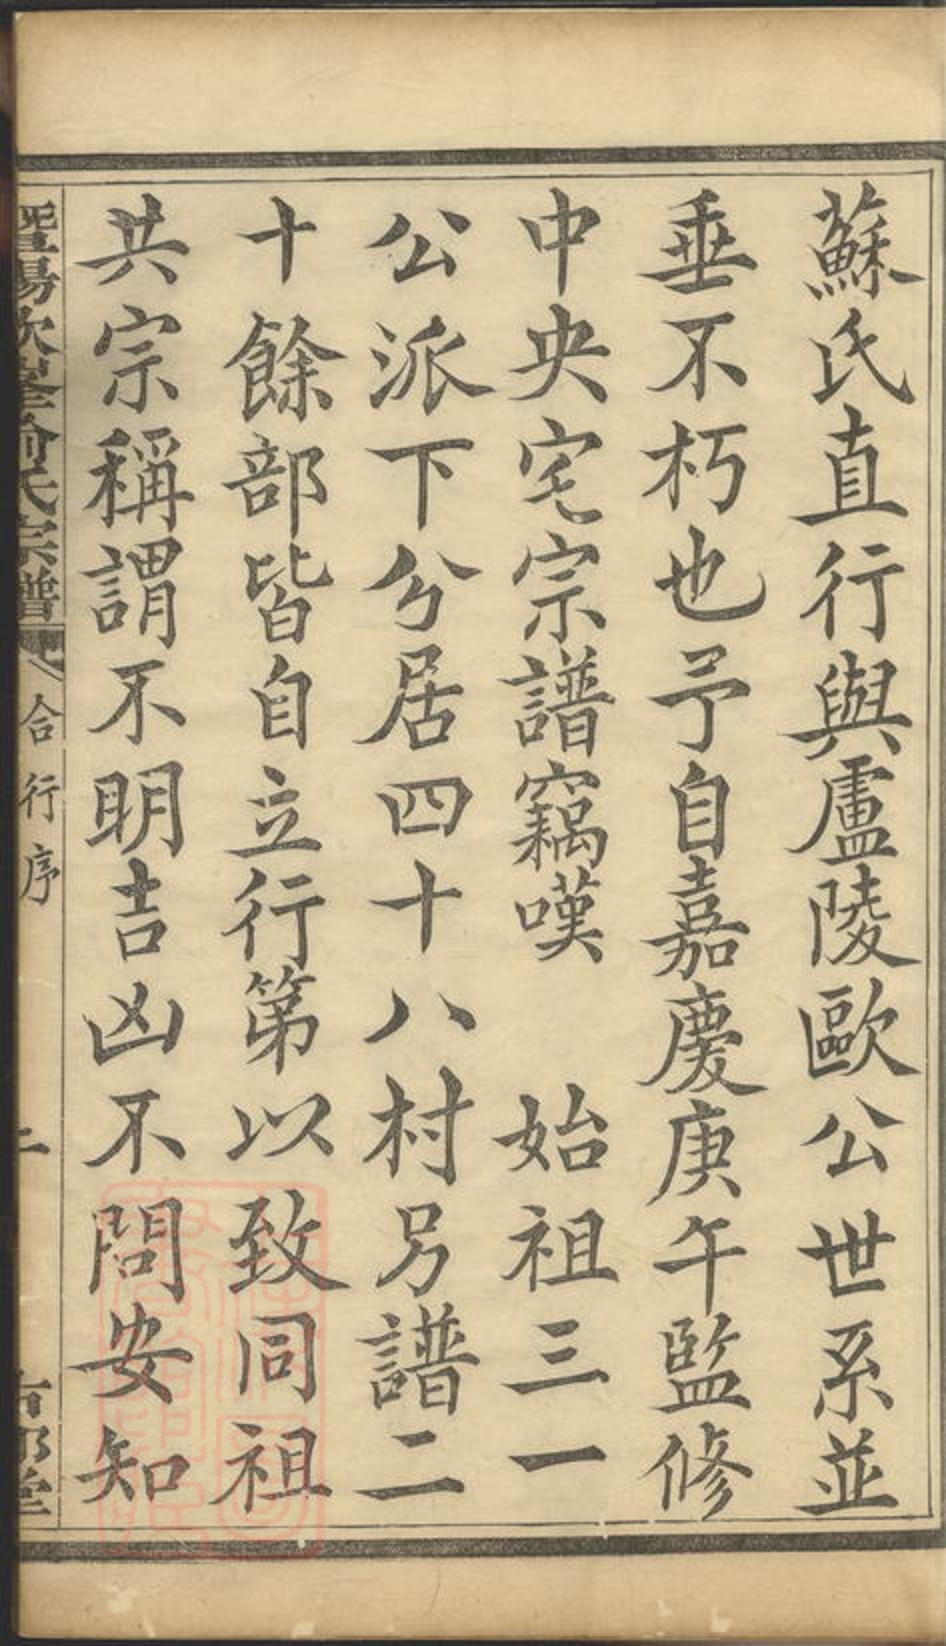 蘇氏直行與盧陵歐公世系並
垂不朽也予自嘉慶庚午監修
中央宅宗譜竊嘆　始祖三一
公派下兮居四十八村另譜二
十餘部皆自立行第以致同祖
共宗稱謂不明吉凶不問安知
暨陽次峯俞氏宗譜
合行序
二